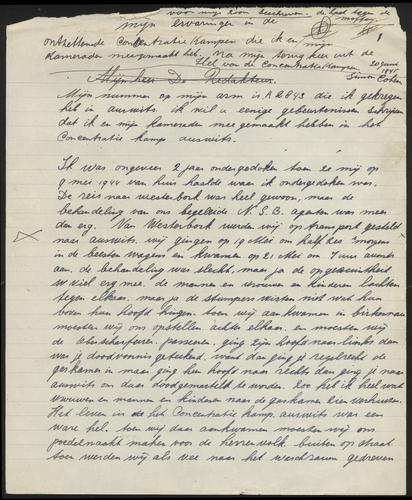 voor mijn zoon beschreven. de laat lezen de
mijn ervaringen in de
ontzettende Concentratie Kampen die ik en mijn
kameraden meegemaakt heb. na mijn terug keer uit de
Hel van de Concentratiekampen
30 Juni 1945
Simon
1
Mijn heer De Redakteur.
Mijn nummer op mijn arm is A 2843 die ik gekregen
heb in auswits. ik wil u eenige gebeurtenissen schrijven
dat ik en mijn kameraden mee gemaakt hebben in het
Concentratie kamp auswits.
Ik was ongeveer 2 jaar ondergedoken toen ze mij op
9 mei 1944 van huis haalde waar ik ondergedoken was.
De reis naar westerbork was heel gewoon, maar de
behandeling van ons begeleide N.S.B. agenten was meer
dan erg. Van Westerbork werden wij op transport gesteld
naar auswits. wij gingen op 19 Mei om half des morgens
in de beesten wagens en kwamen op 21 Mei om 7 uur avonds
aan. de behandeling was slecht, maar ja de opgewektheid
viel erg mee. de mannen en vrouwen en kinderen lachten
tegen elkaar, maar ja de stumpers wisten niet wat hun
boven hun hoofd hingen. toen wij aankwamen in birkenau
moesten wij ons opstellen achter elkaar. en moesten wij
de passeeren. ging zijn hoofd naar links dan
was je doodvonnis getekend. want dan ging je regelrecht de
gaskamer in maar ging hun hoofd naar rechts dan ging je naar
auswits om daar doodgemarteld te worden. zoo heb ik heel wat
vrouwen en mannen en kinderen naar de gaskamer zien verhuizen.
Het leven in de het Concentratie kamp. auswits was een
ware hel. toen wij daar aankwamen moesten wij ons
poedelnaakt maken voor de herrenvolk. buiten op straat
toen werden wij als vee naar het waschraum gedreven